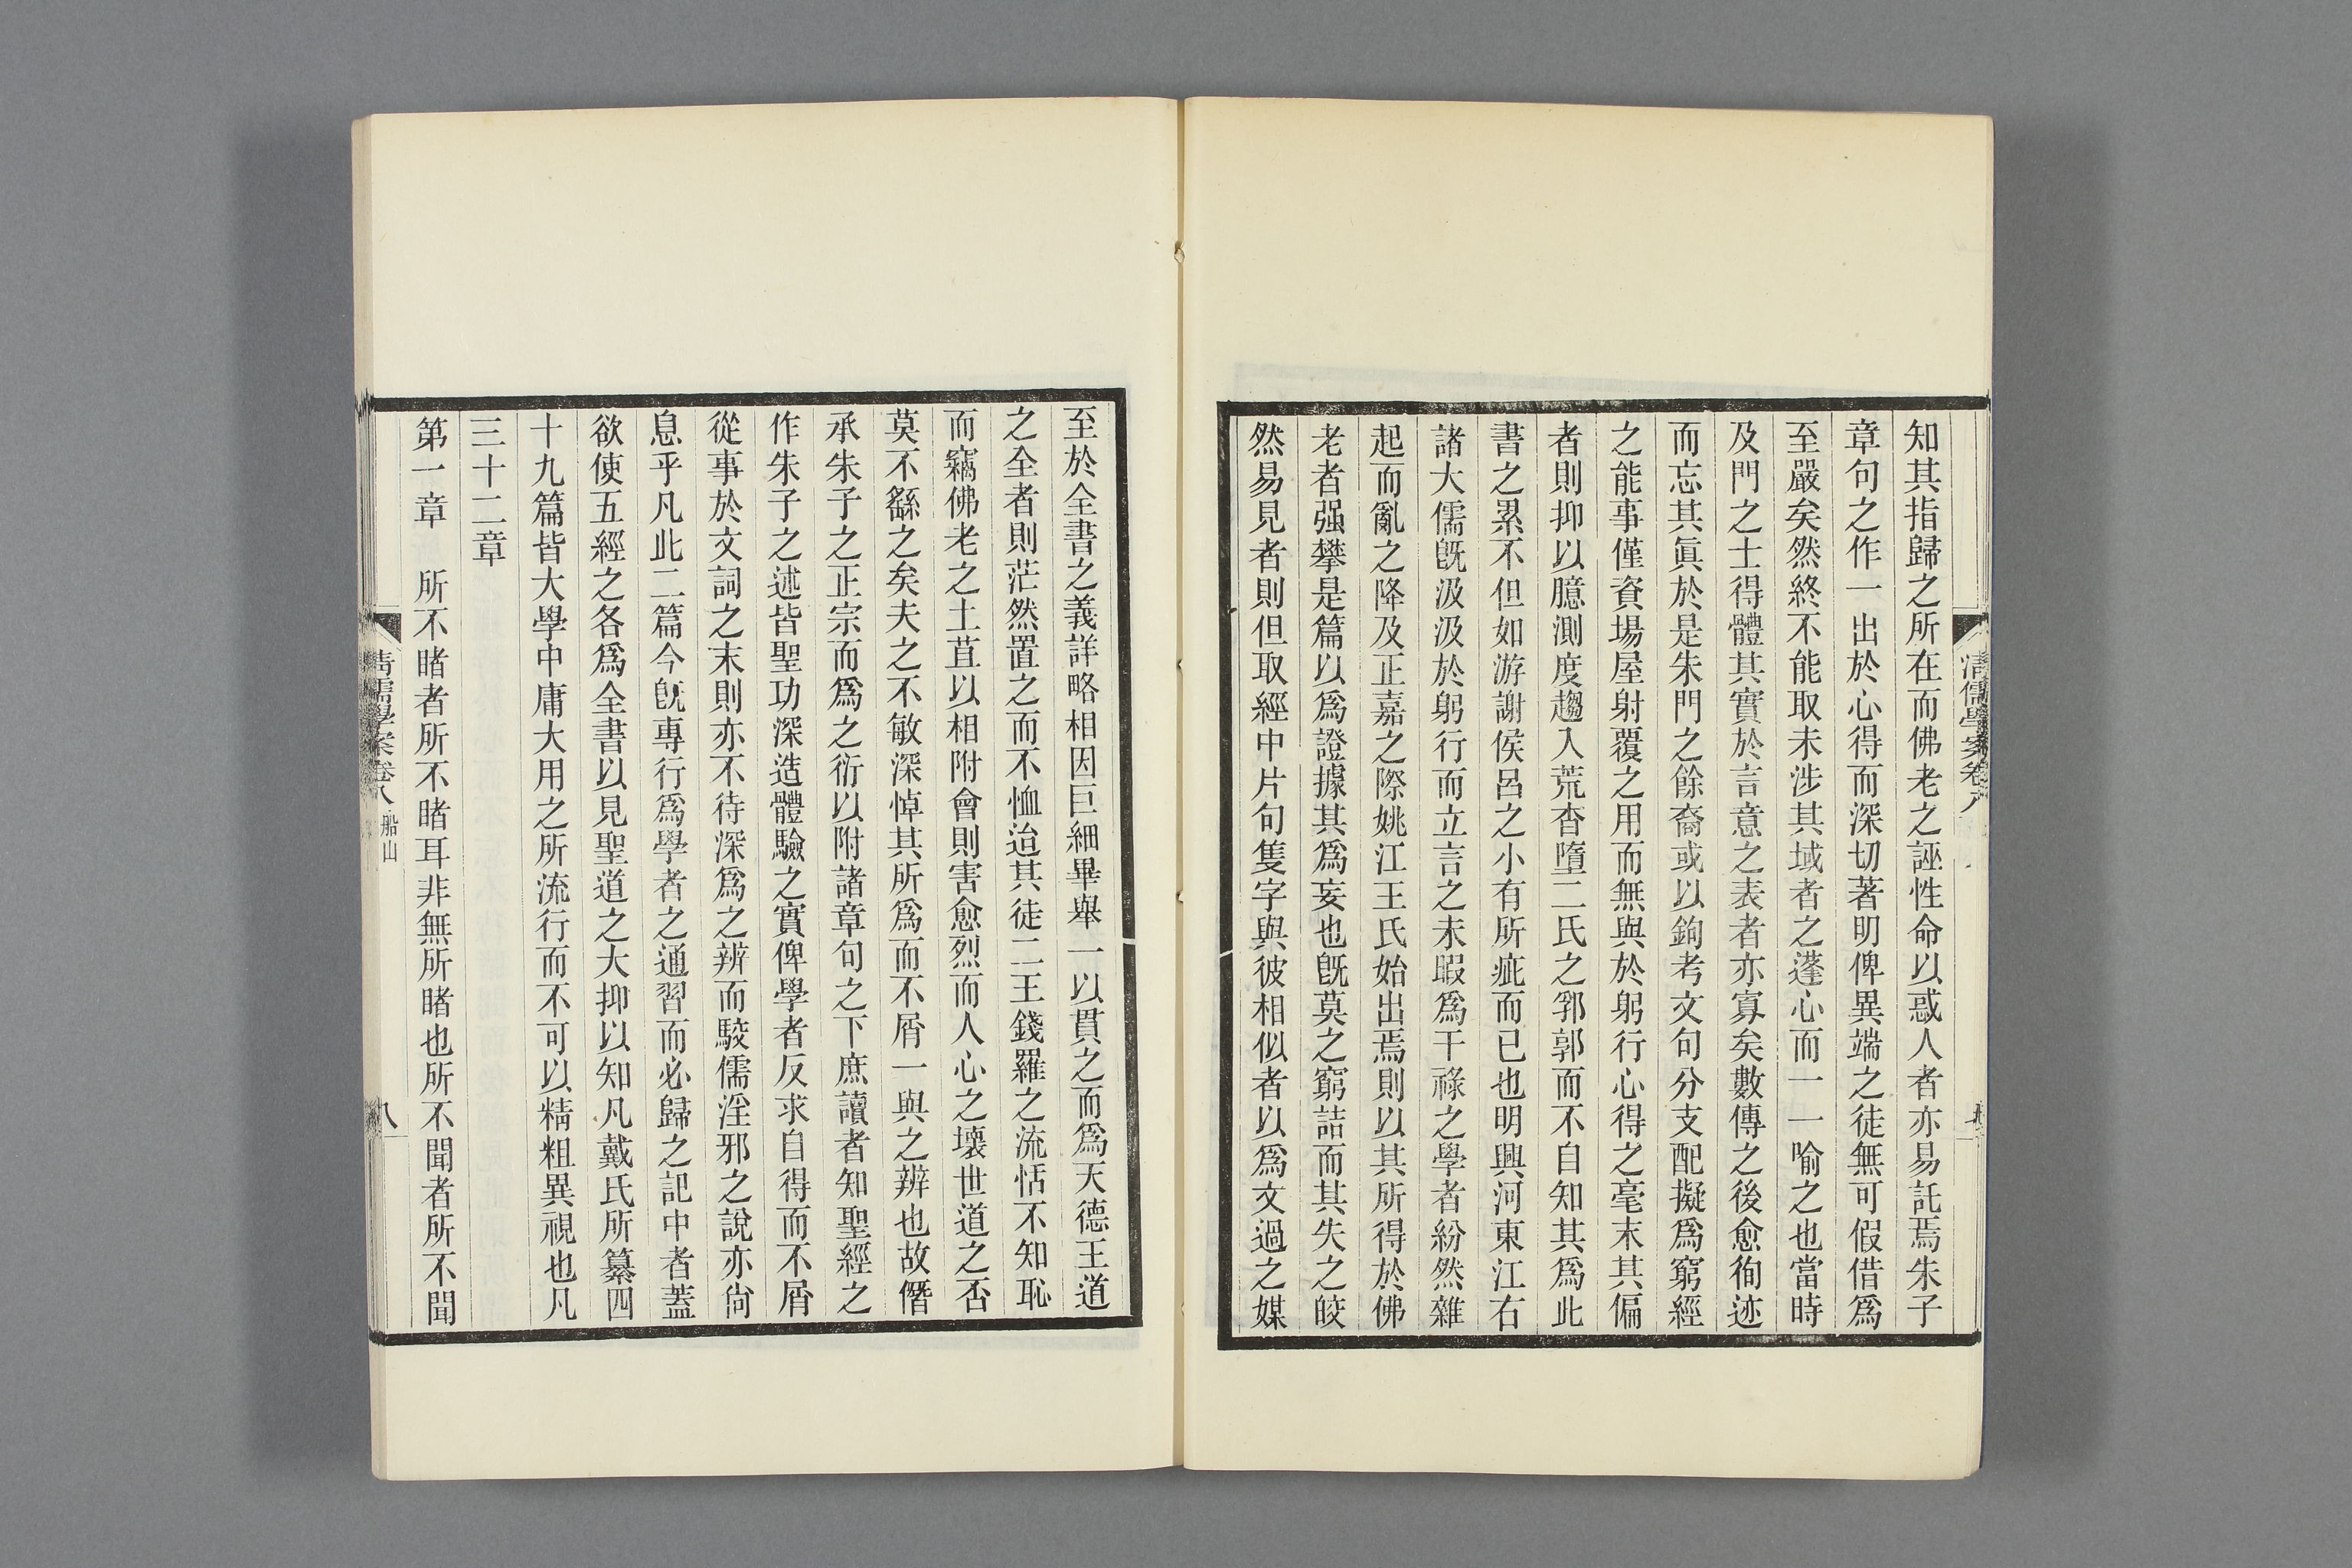 知其指歸之所在而佛老之誣性命以惑人者亦易託焉朱子
章句之作一出於心得而深切著明俾異端之徒無可假借爲
至嚴矣然終不能取未涉其域者之蓬心而一一喻之也當時
及門之士得體其實於言意之表者亦寡矣數傳之後愈徇迹
而忘其眞於是朱門之餘裔或以鉤考文句分支配擬爲窮經
之能事僅資場屋射覆之用而無與於躬行心得之毫末其偏
者則抑以臆測度趨入荒杳墮二氏之郛郭而不自知其爲此
書之累不但如游謝侯呂之小有所疵而已也明興河東江右
諸大儒旣汲汲於躬行而立言之未暇爲干祿之學者紛然雜
起而亂之降及正嘉之際姚江王氏始出焉則以其所得於佛
老者强攀是篇以爲證據其爲妄也旣莫之窮詰而其失之皎
然易見者則但取經中片句隻字與彼相似者以爲文過之媒
至於全書之義詳略相因巨細畢舉一以貫之而爲天德王道
之全者則茫然置之而不恤迨其徒二王錢羅之流恬不知恥
而竊佛老之土苴以相附會則害愈烈而人心之壞世道之否
莫不繇之矣夫之不敏深悼其所爲而不屑一與之辨也故僭
承朱子之正宗而爲之衍以附諸章句之下庶讀者知聖經之
作朱子之述皆聖功深造體驗之實俾學者反求自得而不屑
從事於文詞之末則亦不待深爲之辨而駮儒淫邪之說亦尙
息乎凡此二篇今旣專行爲學者之通習而必歸之記中者蓋
欲使五經之各爲全書以見聖道之大抑以知凡戴氏所纂四
十九篇皆大學中庸大用之所流行而不可以精粗異視也凡
三十二章
第一章　所不睹者所不睹耳非無所睹也所不聞者所不聞
清儒學案卷八　船山　八